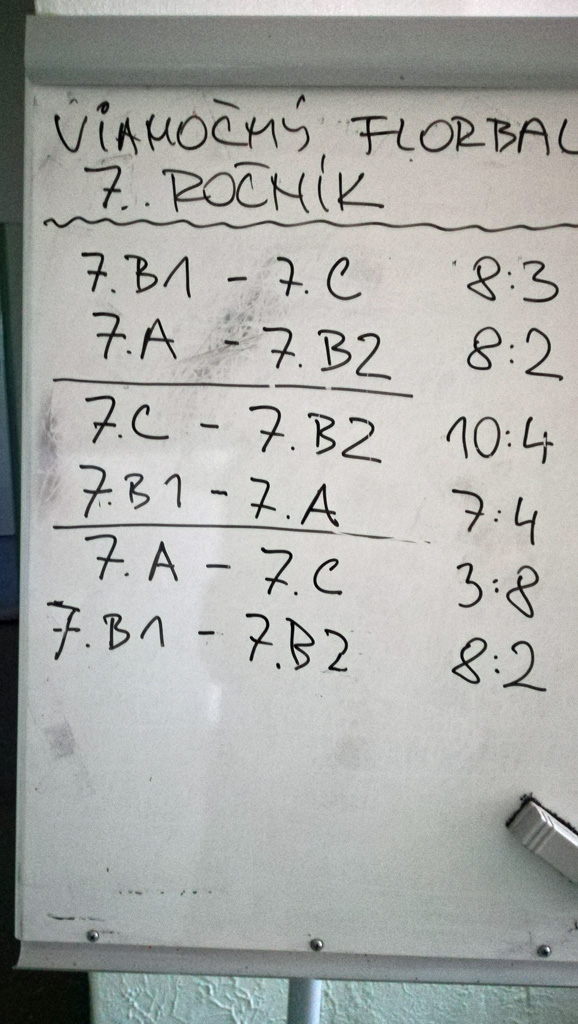 VIANOČNÝ FLORBAL
7. ROČNÍK
7.B1 - 7.C 8:3
7.A - 7.B2 8:2
7.C - 7.B2 10:4
7.B1 - 7.A 7:4
7.A - 7.C 3:8
7.B1 - 7.B2 8:2